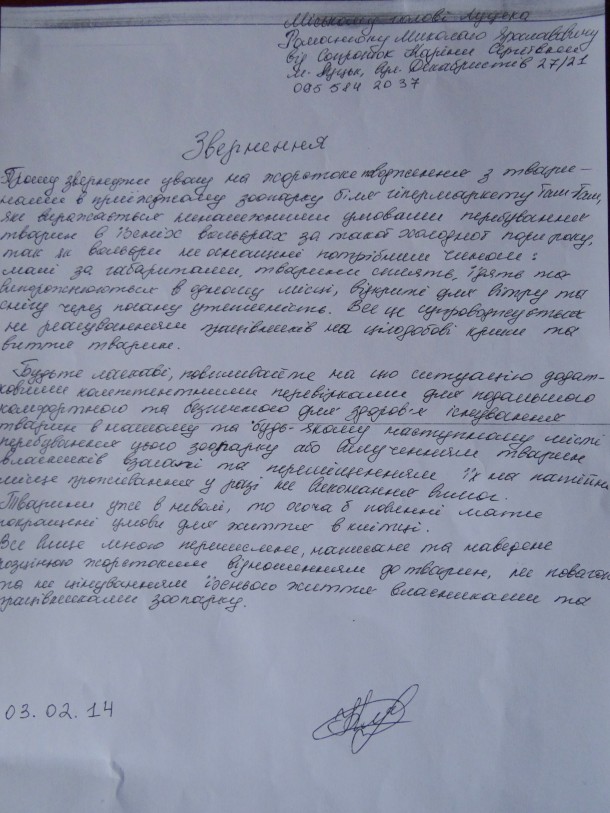 Міському голові Луцька
Романюку Миколаю Ярославовичу
від
м. Луцьк, вул. Декабристів 27/21
095 584 20 37
Звернення
Прошу звернути увагу на жорстоке поводження з твари-
нами в приїжджому зоопарку біля гіпермаркету Там-Там,
яке виражається неналежними умовами перебування
тварин в їхніх вольєрах за такої холодної пори року,
так як вольєри не оснащені потрібним чином:
малі за габаритами, тварини сплять, їдять та
випорожнюються в одному місці, відкриті для вітру та
снігу через погану утепленість. Все це супроводжується
не реагуванням працівників на цілодобові крики та
виття тварин.
Будьте ласкаві, повпливайте на цю ситуацію додат-
ковими компетентними перевірками для подальшого
комфортного та безпечного для здоров'я існування
тварин в нашому та будь-якому наступному місті
перебування цього зоопарку або вилученням тварин
власників взагалі та переміщенням їх на постійне
місце проживання у разі не виконання вимог.
Тварини уже в неволі, то хоча б повинні мати
покращені умови для життя в клітці.
Все вище мною перечислене, написане та наведене
розцінюю жорстоким відношенням до тварин, не повагою
та не цінуванням їхнього життя власниками та
працівниками зоопарку.
03.02.14